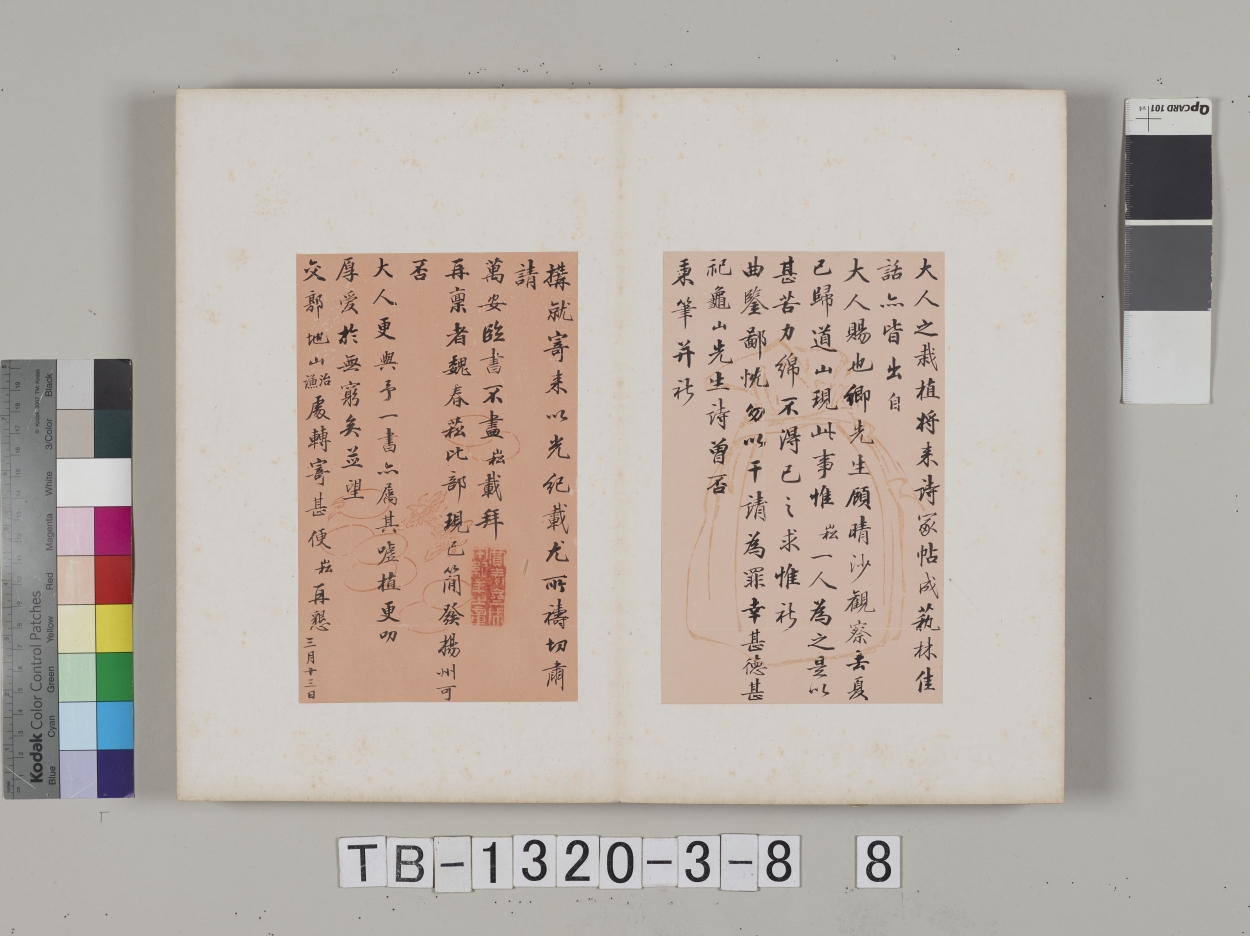 大人之栽植将来诗冢帖成蓺林佳
話亦皆出自
大人賜也鄉先生顧晴沙觀察去夏
已歸道山現此事惟崧一人為之是以
甚苦力綿不得已之求惟祈
曲鑒鄙忱勿以干請為罪幸甚德甚
祀龜山先生詩曽否
秉筆并祈
搆就寄来以光纪載尤所禱切肅
請
萬安臨書不盡崧載拜
再稟者魏春菘比部現已簡發揚州可
否
大人更與予一書亦屬其噓植更叨
厚爱於無窮矣並望
交郭地山治謙處轉寄甚便崧再懇三月廿三日
QPCARD 101 v4
Kodak Color Control Patches
Blue Cyan Green Yellow Red Magenta White 3/Color Black
TB-1320-3-8 8